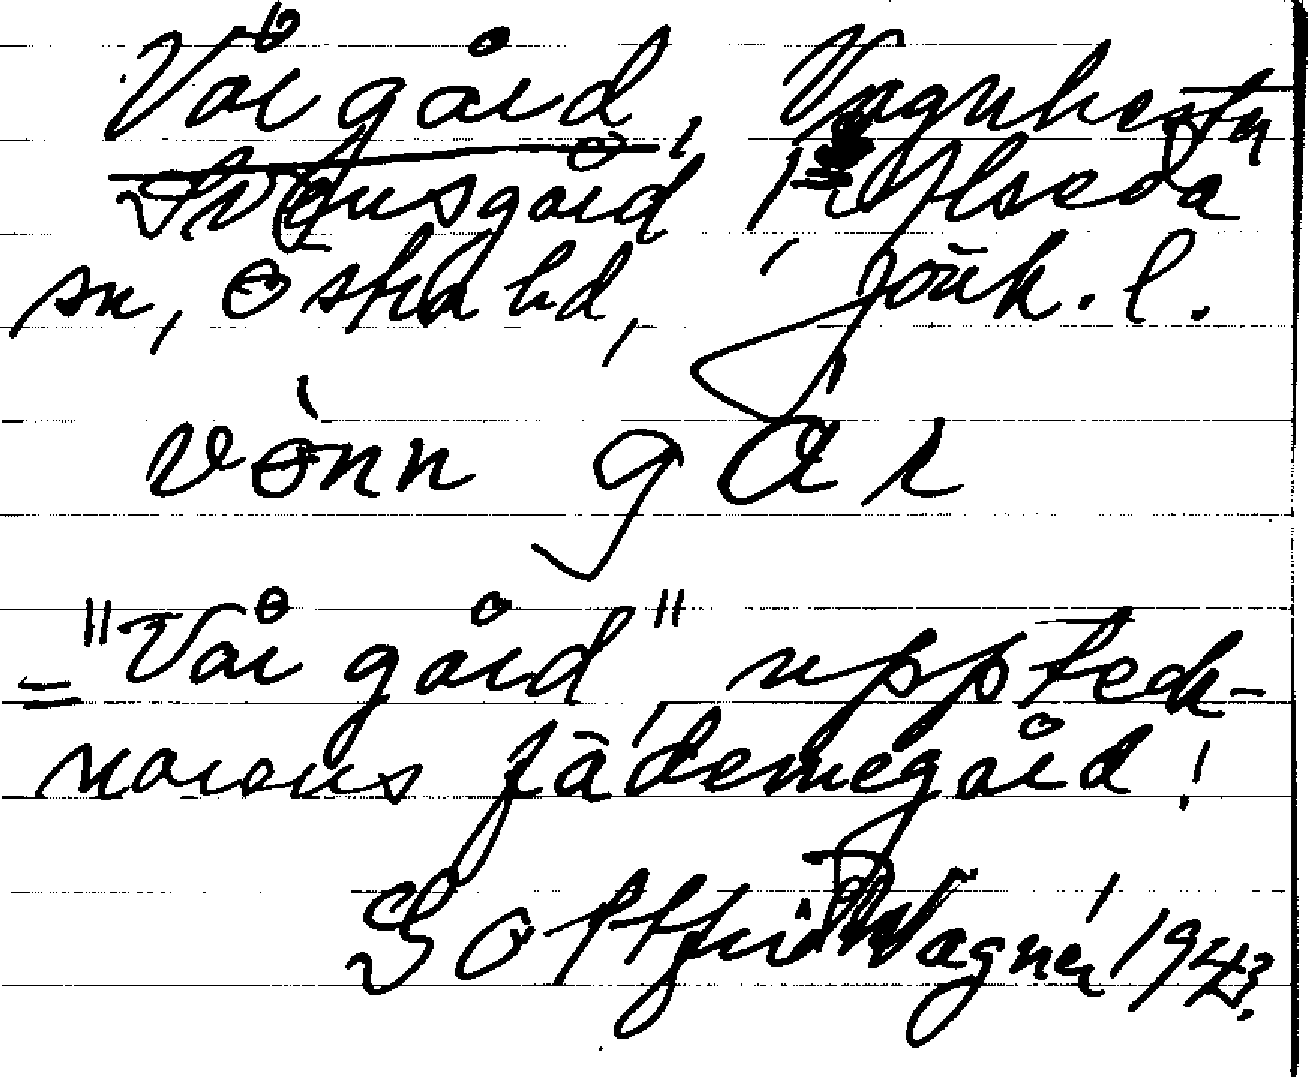 Vår gård, Vagnhesta
Svensgård, i Alseda
sn, Östra hd, jönk. l.
vònn gá r
= "Vår gård", uppteck-
narens fädernegård!
Gottfrid Wagnér, 1943.